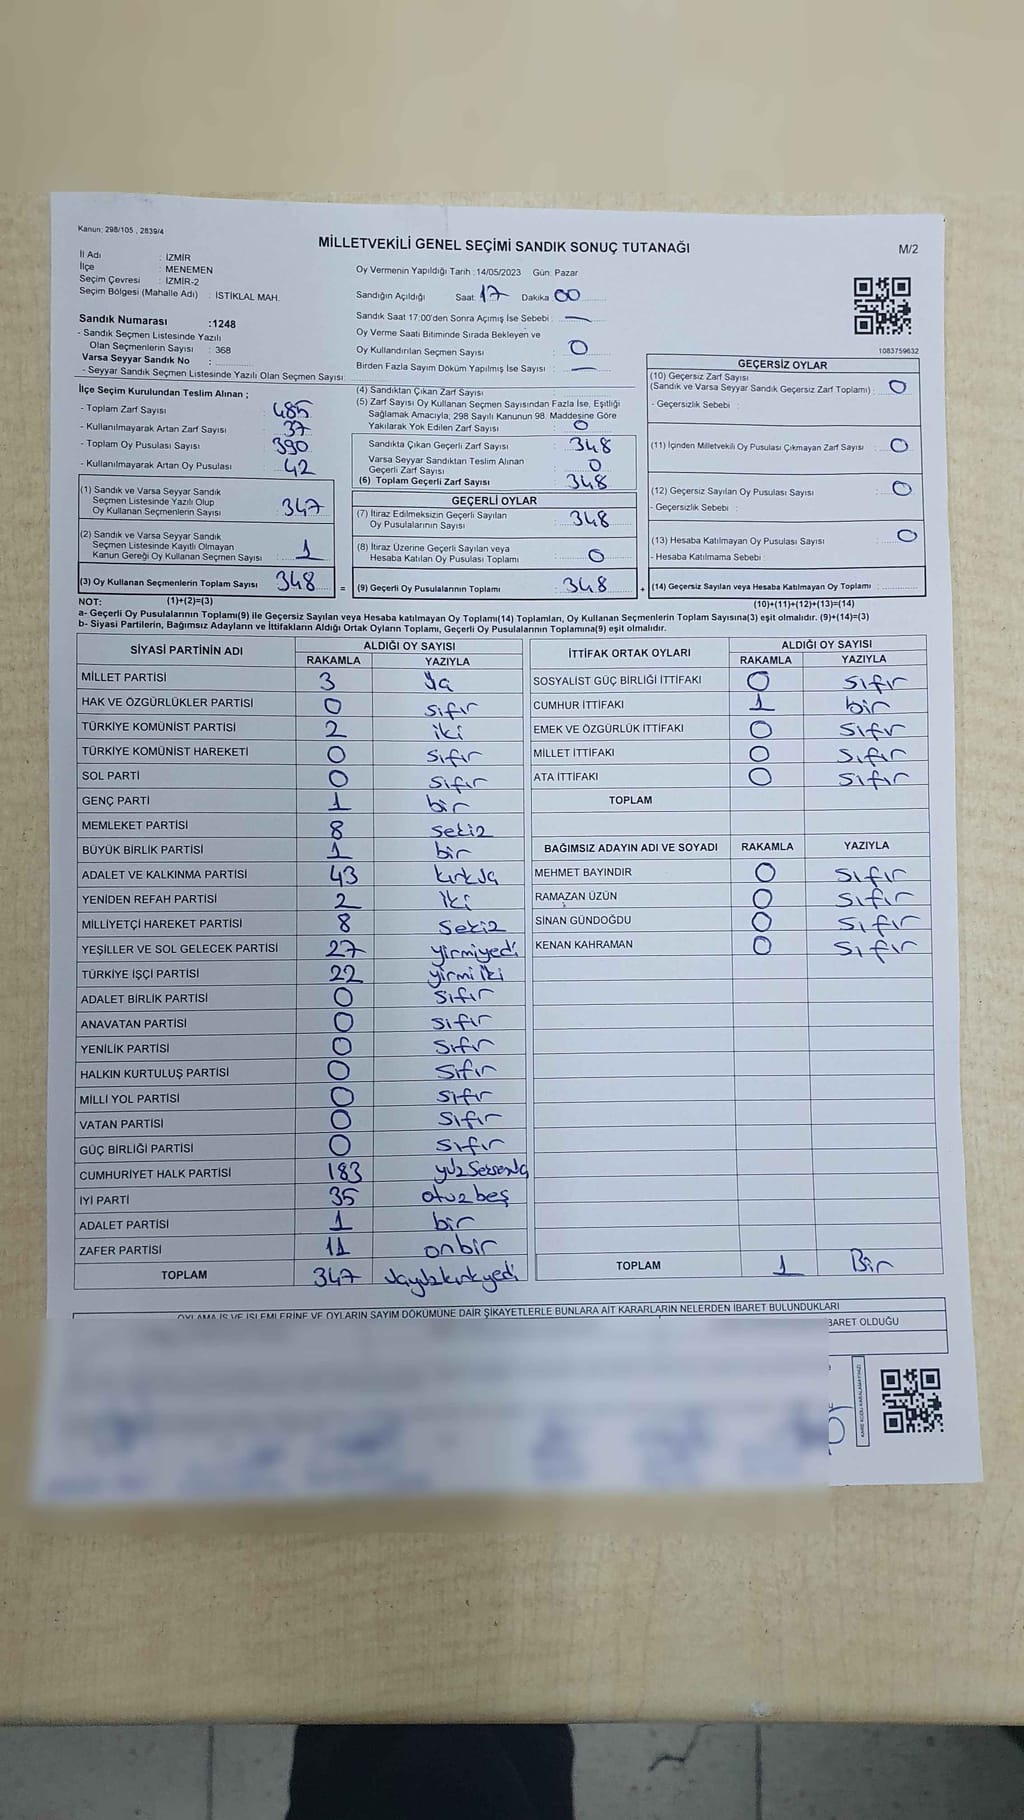 Kanun: 298/105 , 2839/4
MİLLETVEKİLİ GENEL SEÇİMİ SANDIK SONUÇ TUTANAĞI
M/2
İl Adı : İZMİR
İlçe : MENEMEN
Seçim Çevresi : İZMİR-2
Seçim Bölgesi (Mahalle Adı) : İSTİKLAL MAH.
Oy Vermenin Yapıldığı Tarih : 14/05/2023 Gün: Pazar
Sandığın Açıldığı Saat: 17 Dakika 00
Sandık Saat 17:00'den Sonra Açımış İse Sebebi : —
Oy Verme Saati Bitiminde Sırada Bekleyen ve
Oy Kullandırılan Seçmen Sayısı : 0
Birden Fazla Sayım Döküm Yapılmış İse Sayısı : —
1083759632
Sandık Numarası :1248
- Sandık Seçmen Listesinde Yazılı
Olan Seçmenlerin Sayısı : 368
Varsa Seyyar Sandık No :
- Seyyar Sandık Seçmen Listesinde Yazılı Olan Seçmen Sayısı:
İlçe Seçim Kurulundan Teslim Alınan ;
- Toplam Zarf Sayısı : 485
- Kullanılmayarak Artan Zarf Sayısı : 37
- Toplam Oy Pusulası Sayısı : 390
- Kullanılmayarak Artan Oy Pusulası : 42
(1) Sandık ve Varsa Seyyar Sandık
Seçmen Listesinde Yazılı Olup
Oy Kullanan Seçmenlerin Sayısı : 347
(2) Sandık ve Varsa Seyyar Sandık
Seçmen Listesinde Kayıtlı Olmayan
Kanun Gereği Oy Kullanan Seçmen Sayısı : 1
(3) Oy Kullanan Seçmenlerin Toplam Sayısı : 348 =
(4) Sandıktan Çıkan Zarf Sayısı :
(5) Zarf Sayısı Oy Kullanan Seçmen Sayısından Fazla İse, Eşitliği
Sağlamak Amacıyla, 298 Sayılı Kanunun 98. Maddesine Göre
Yakılarak Yok Edilen Zarf Sayısı : 0
Sandıkta Çıkan Geçerli Zarf Sayısı : 348
Varsa Seyyar Sandıktan Teslim Alınan
Geçerli Zarf Sayısı : 0
(6) Toplam Geçerli Zarf Sayısı : 348
GEÇERLİ OYLAR
(7) İtiraz Edilmeksizin Geçerli Sayılan
Oy Pusulalarının Sayısı : 348
(8) İtiraz Üzerine Geçerli Sayılan veya
Hesaba Katılan Oy Pusulası Toplamı : 0
(9) Geçerli Oy Pusulalarının Toplamı : 348 +
GEÇERSİZ OYLAR
(10) Geçersiz Zarf Sayısı
(Sandık ve Varsa Seyyar Sandık Geçersiz Zarf Toplamı) : 0
- Geçersizlik Sebebi :
(11) İçinden Milletvekili Oy Pusulası Çıkmayan Zarf Sayısı : 0
(12) Geçersiz Sayılan Oy Pusulası Sayısı : 0
- Geçersizlik Sebebi :
(13) Hesaba Katılmayan Oy Pusulası Sayısı : 0
- Hesaba Katılmama Sebebi :
(14) Geçersiz Sayılan veya Hesaba Katılmayan Oy Toplamı :
NOT: (1)+(2)=(3) (10)+(11)+(12)+(13)=(14)
a- Geçerli Oy Pusulalarının Toplamı(9) ile Geçersiz Sayılan veya Hesaba katılmayan Oy Toplamı(14) Toplamları, Oy Kullanan Seçmenlerin Toplam Sayısına(3) eşit olmalıdır. (9)+(14)=(3)
b- Siyasi Partilerin, Bağımsız Adayların ve İttifakların Aldığı Ortak Oyların Toplamı, Geçerli Oy Pusulalarının Toplamına(9) eşit olmalıdır.
SİYASİ PARTİNİN ADI ALDIĞI OY SAYISI
RAKAMLA YAZIYLA
MİLLET PARTİSİ 3
HAK VE ÖZGÜRLÜKLER PARTİSİ 0 sıfır
TÜRKİYE KOMÜNİST PARTİSİ 2 iki
TÜRKİYE KOMÜNİST HAREKETİ 0 sıfır
SOL PARTİ 0 sıfır
GENÇ PARTİ 1 bir
MEMLEKET PARTİSİ 8 sekiz
BÜYÜK BİRLİK PARTİSİ 1 bir
ADALET VE KALKINMA PARTİSİ 43
YENİDEN REFAH PARTİSİ 2 iki
MİLLİYETÇİ HAREKET PARTİSİ 8 sekiz
YEŞİLLER VE SOL GELECEK PARTİSİ 27 yirmiyedi
TÜRKİYE İŞÇİ PARTİSİ 22 yirmi iki
ADALET BİRLİK PARTİSİ 0 sıfır
ANAVATAN PARTİSİ 0 sıfır
YENİLİK PARTİSİ 0 sıfır
HALKIN KURTULUŞ PARTİSİ 0 sıfır
MİLLİ YOL PARTİSİ 0 sıfır
VATAN PARTİSİ 0 sıfır
GÜÇ BİRLİĞİ PARTİSİ 0 sıfır
CUMHURİYET HALK PARTİSİ 183
İYİ PARTİ 35 otuzbeş
ADALET PARTİSİ 1 bir
ZAFER PARTİSİ 11 onbir
TOPLAM 347
İTTİFAK ORTAK OYLARI ALDIĞI OY SAYISI
RAKAMLA YAZIYLA
SOSYALİST GÜÇ BİRLİĞİ İTTİFAKI 0 sıfır
CUMHUR İTTİFAKI 1 bir
EMEK VE ÖZGÜRLÜK İTTİFAKI 0 sıfır
MİLLET İTTİFAKI 0 sıfır
ATA İTTİFAKI 0 sıfır
TOPLAM
BAĞIMSIZ ADAYIN ADI VE SOYADI RAKAMLA YAZIYLA
MEHMET BAYINDIR 0 sıfır
RAMAZAN ÜZÜN 0 sıfır
SİNAN GÜNDOĞDU 0 sıfır
KENAN KAHRAMAN 0 sıfır
TOPLAM 1 Bir
OYLAMA İŞ VE İŞLEMLERİNE VE OYLARIN SAYIM DÖKÜMÜNE DAİR ŞİKAYETLERLE BUNLARA AİT KARARLARIN NELERDEN İBARET BULUNDUKLARI
BARET OLDUĞU